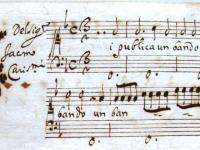 Del Sigr
Jacmo
Carissi
i publica un bando
bando un ban